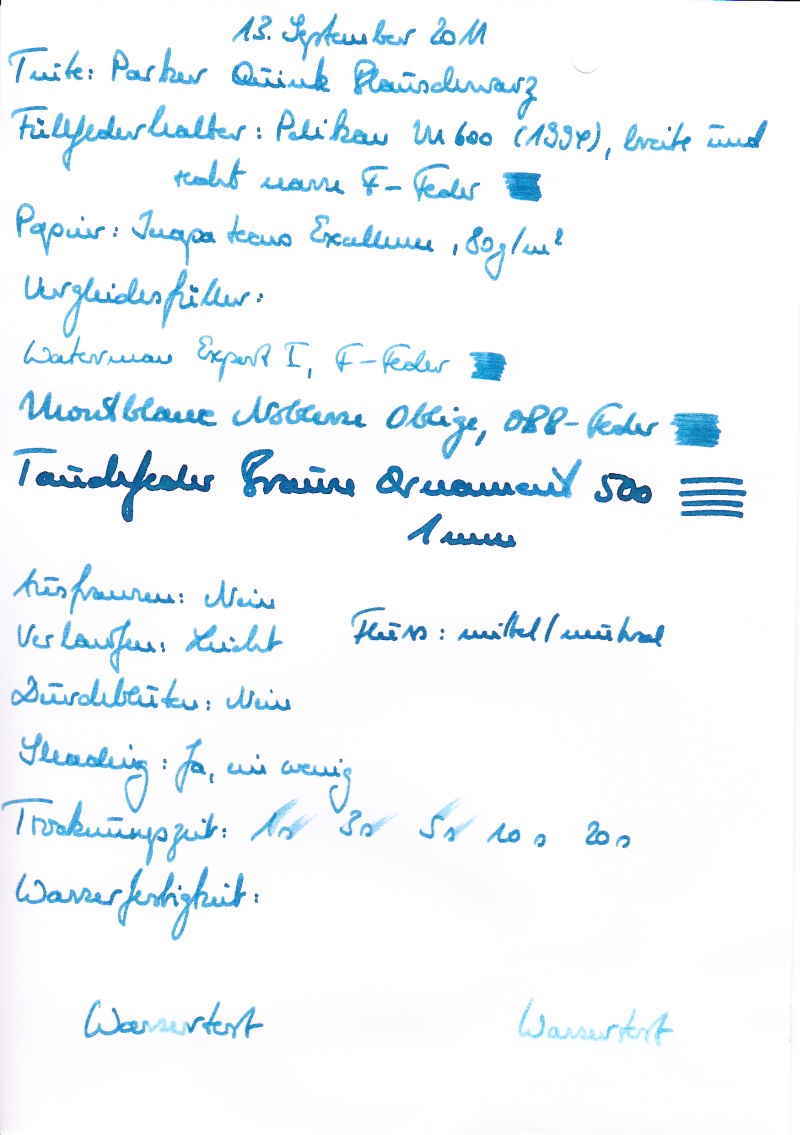 13. September 2011
Tinte: Parker Quink Blauschwarz
Füllfederhalter: Pelikan M600 (1994), breite und
recht nasse F-Feder
Papier: Inapa tecno Excellence, 80g/m²
Vergleichsfüller:
Waterman Expert I, F-Feder
Montblanc Noblesse Oblige, OBB-Feder
Tauchfeder Brause Ornament 500
1 mm
Ausfransen: Nein
Verlaufen: Leicht Fluss: mittel/neutral
Durchbluten: Nein
Shading: Ja, ein wenig
Trocknungszeit: 1s 3s 5s 10s 20s
Wasserfestigkeit:
Wassertest Wassertest